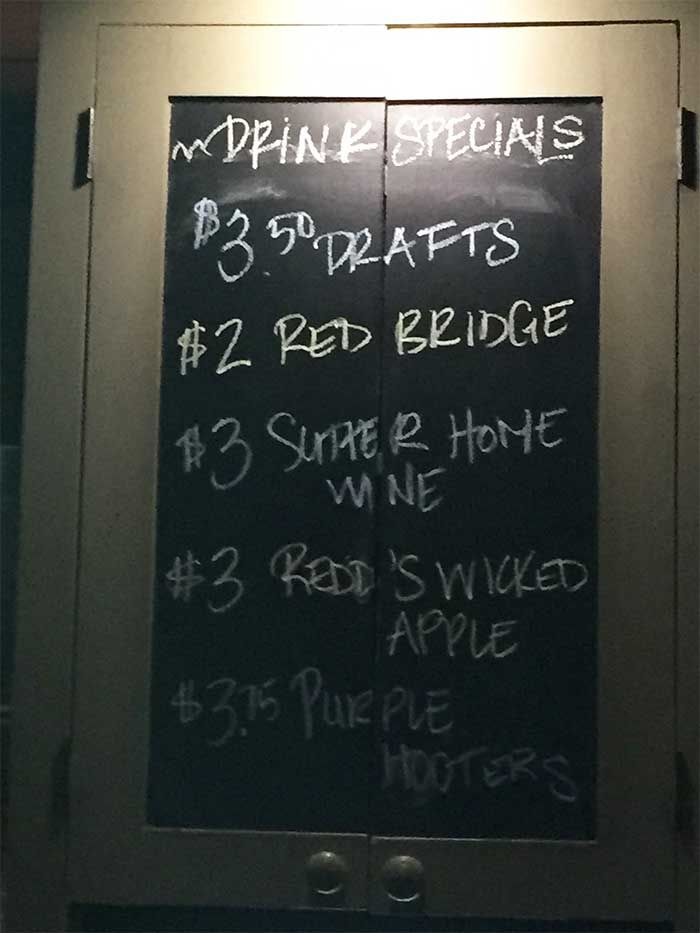 DRINK SPECIALS
$3.50 DRAFTS
$2 RED BRIDGE
$3 SUTTER HOME
WINE
$3 REDD'S WICKED
APPLE
$3.75 PURPLE
HOOTERS